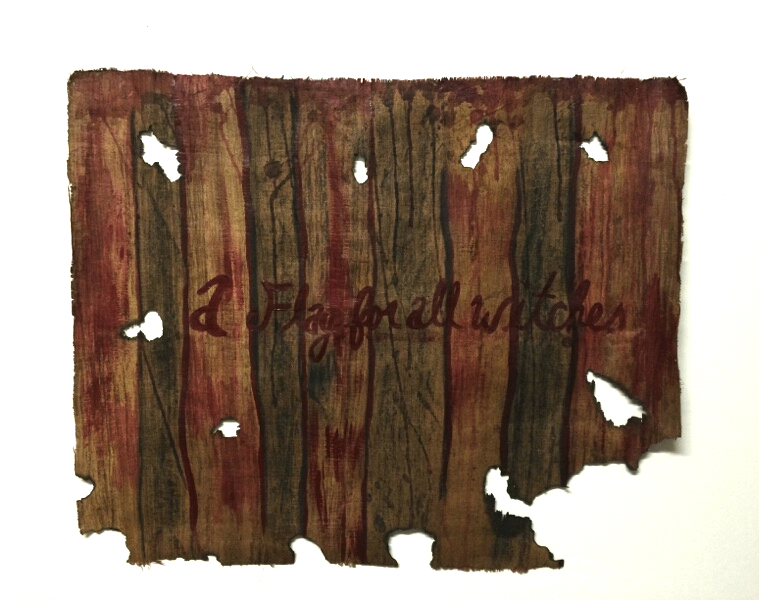 a Flag for all witches